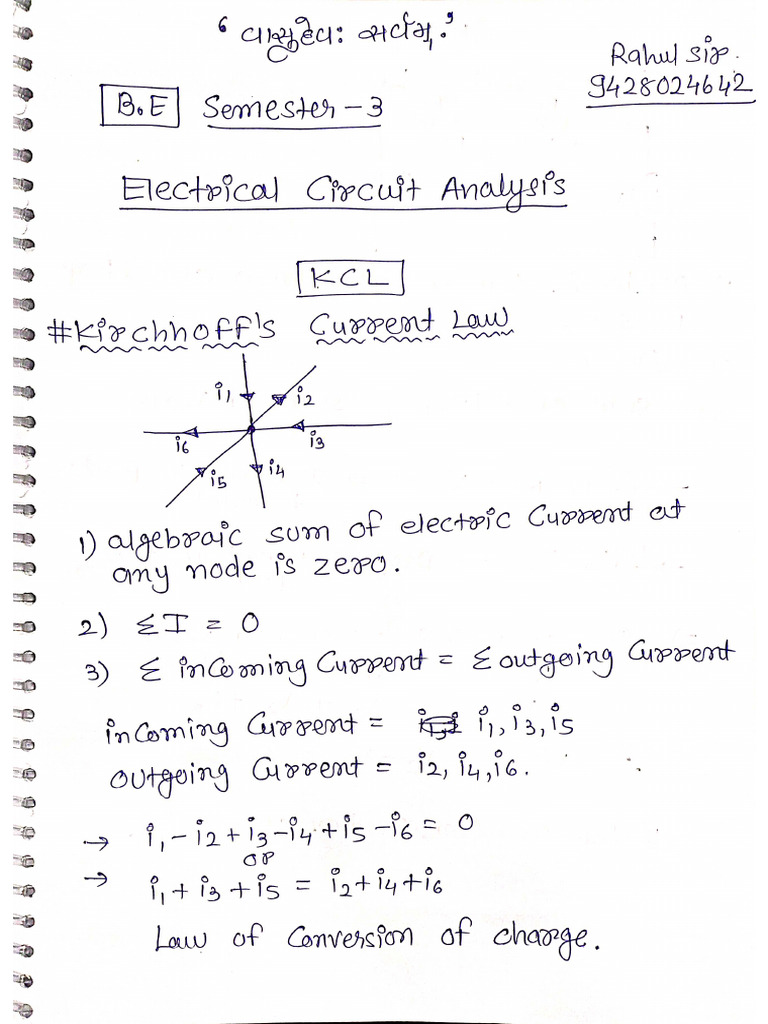 ‘ વાસુદેવઃ સર્વમ્. ’
Rahul sir.
9428024642
B.E Semester - 3
Electrical Circuit Analysis
KCL
#Kirchhoff's Current Law
i1
i2
i6
i3
i5
i4
1) algebraic sum of electric current at
any node is zero.
2) ΣI = 0
3) Σ incoming current = Σ outgoing current
incoming current = i1, i3, i5
outgoing current = i2, i4, i6.
→ i1 - i2 + i3 - i4 + i5 - i6 = 0
or
→ i1 + i3 + i5 = i2 + i4 + i6
Law of Conversion of charge.